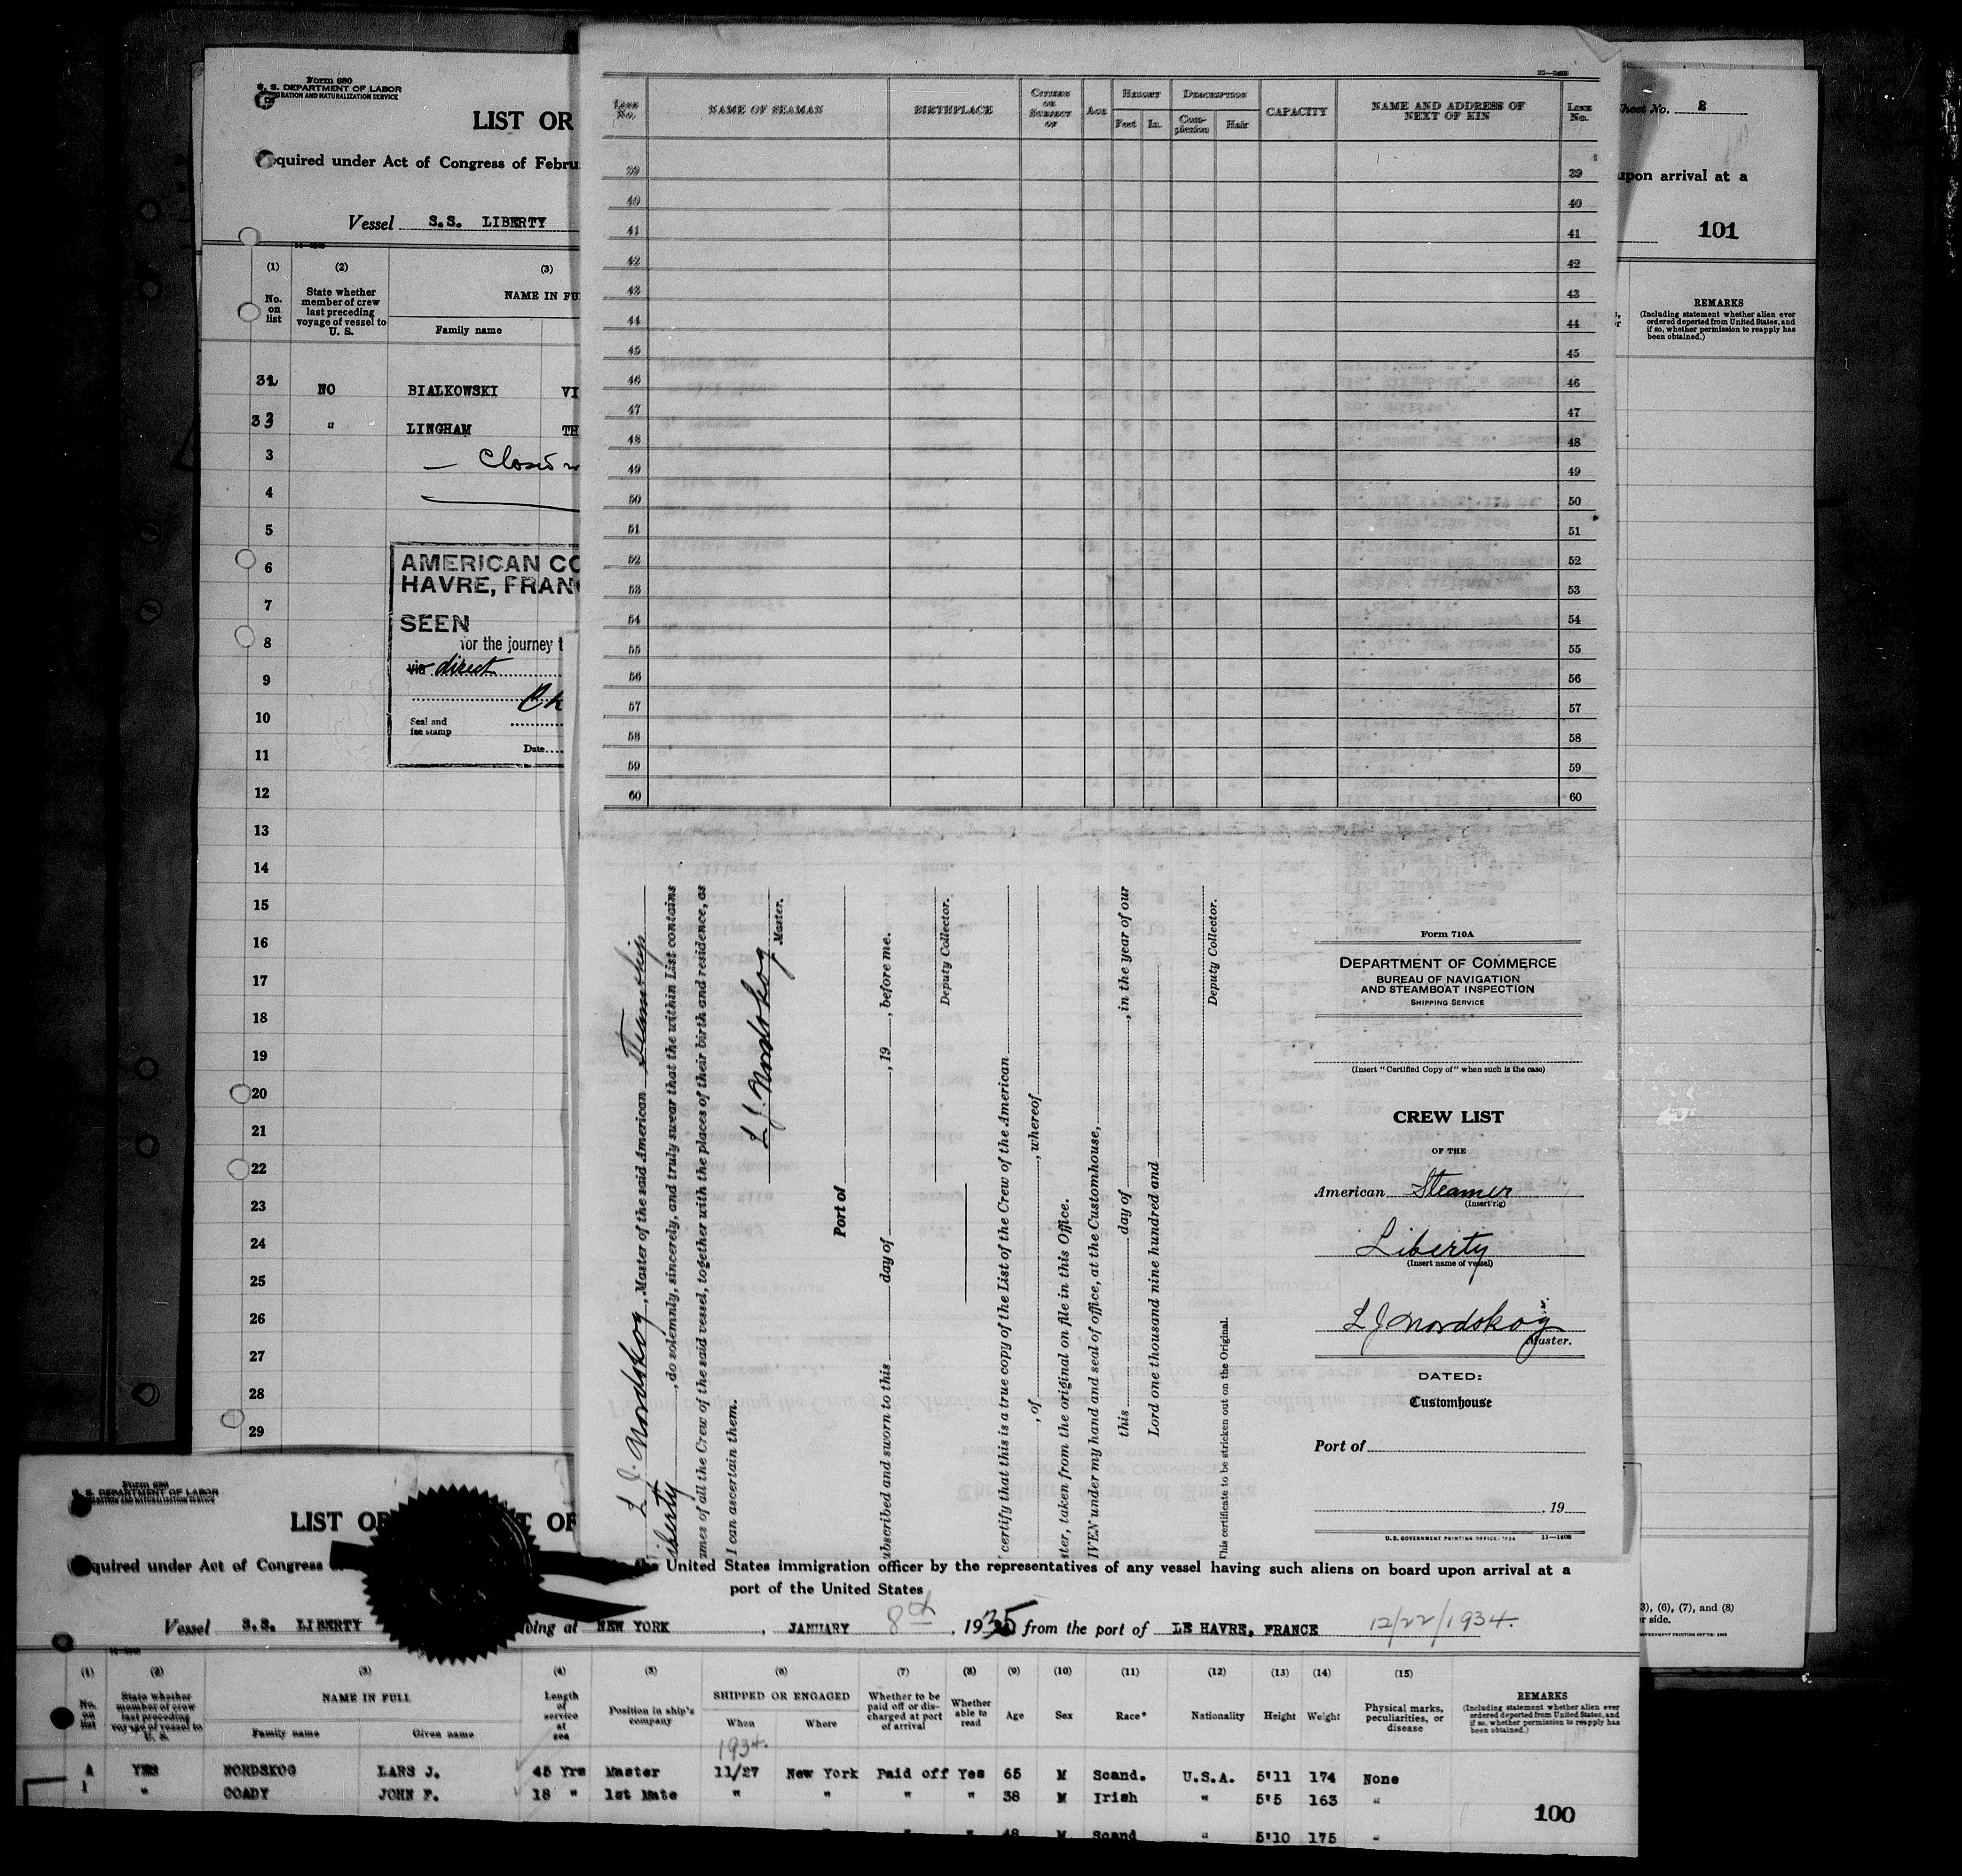 Form 680
U. S. DEPARTMENT OF LABOR
GRATION AND NATURALIZATION SERVICE
LIST OR
equired under Act of Congress of Febru
Vessel S.S. LIBERTY
(1) (2) (3)
No. on list
State whether member of crew last preceding voyage of vessel to U. S.
NAME IN FU
Family name
31 NO BIALKOWSKI VI
33 " LINGHAM TH
3 — Closed
4
5
6
7
8
9
10
11
12
13
14
15
16
17
18
19
20
21
22
23
24
25
26
27
28
29
AMERICAN CO
HAVRE, FRAN
SEEN
for the journey t
via direct
Ch
Seal and
fee stamp
Date
Line No. NAME OF SEAMAN BIRTHPLACE CITIZEN OR SUBJECT OF AGE HEIGHT Feet In. DESCRIPTION Complexion Hair CAPACITY NAME AND ADDRESS OF NEXT OF KIN Line No.
39 39
40 40
41 41
42 42
43 43
44 44
45 45
46 46
47 47
48 48
49 49
50 50
51 51
52 52
53 53
54 54
55 55
56 56
57 57
58 58
59 59
60 60
L J. Nordskog, Master of the said American Steamship
iberty, do solemnly, sincerely, and truly swear that the within List contains
ames of all the Crew of the said vessel, together with the places of their birth and residence, as
I can ascertain them.
L. J. Nordskog
Master.
Port of
ubscribed and sworn to this day of , 19 , before me.
Deputy Collector.
certify that this is a true copy of the List of the Crew of the American
, of , whereof
ster, taken from the original on file in this Office.
IVEN under my hand and seal of office, at the Customhouse,
this day of , in the year of our
Lord one thousand nine hundred and
Deputy Collector.
This certificate to be stricken out on the Original.
Form 710A
DEPARTMENT OF COMMERCE
BUREAU OF NAVIGATION
AND STEAMBOAT INSPECTION
SHIPPING SERVICE
(Insert "Certified Copy of" when such is the case)
CREW LIST
OF THE
American Steamer
(Insert rig)
Liberty
(Insert name of vessel)
L J Nordskog
Master.
DATED:
Customhouse
Port of
, 19
U.S. GOVERNMENT PRINTING OFFICE: 1934 11—1408
Sheet No. 2
upon arrival at a
101
REMARKS
(Including statement whether alien ever ordered deported from United States, and if so, whether permission to reapply has been obtained.)
3), (6), (7), and (8)
r side.
Form 680
U. S. DEPARTMENT OF LABOR
LIST OR T OF
equired under Act of Congress
United States immigration officer by the representatives of any vessel having such aliens on board upon arrival at a
port of the United States
Vessel S.S. LIBERTY ving at NEW YORK , JANUARY 8th , 1935 from the port of LE HAVRE, FRANCE 12/22/1934.
(1) (2) (3) (4) (5) (6) (7) (8) (9) (10) (11) (12) (13) (14) (15)
No. on list
State whether member of crew last preceding voyage of vessel to U. S.
NAME IN FULL
Family name Given name
Length of service at sea
Position in ship's company
SHIPPED OR ENGAGED
When Where
Whether to be paid off or discharged at port of arrival
Whether able to read
Age Sex Race* Nationality Height Weight
Physical marks, peculiarities, or disease
REMARKS
(Including statement whether alien ever ordered deported from United States, and if so, whether permission to reapply has been obtained.)
1934.
A YES NORDSKOG LARS J. 45 Yrs Master 11/27 New York Paid off Yes 65 M Scand. U.S.A. 5'11 174 None
1 " COADY JOHN F. 18 " 1st Mate " " " " 38 M Irish " 5'5 163 "
100
48 M Scand " 5'10 175 "